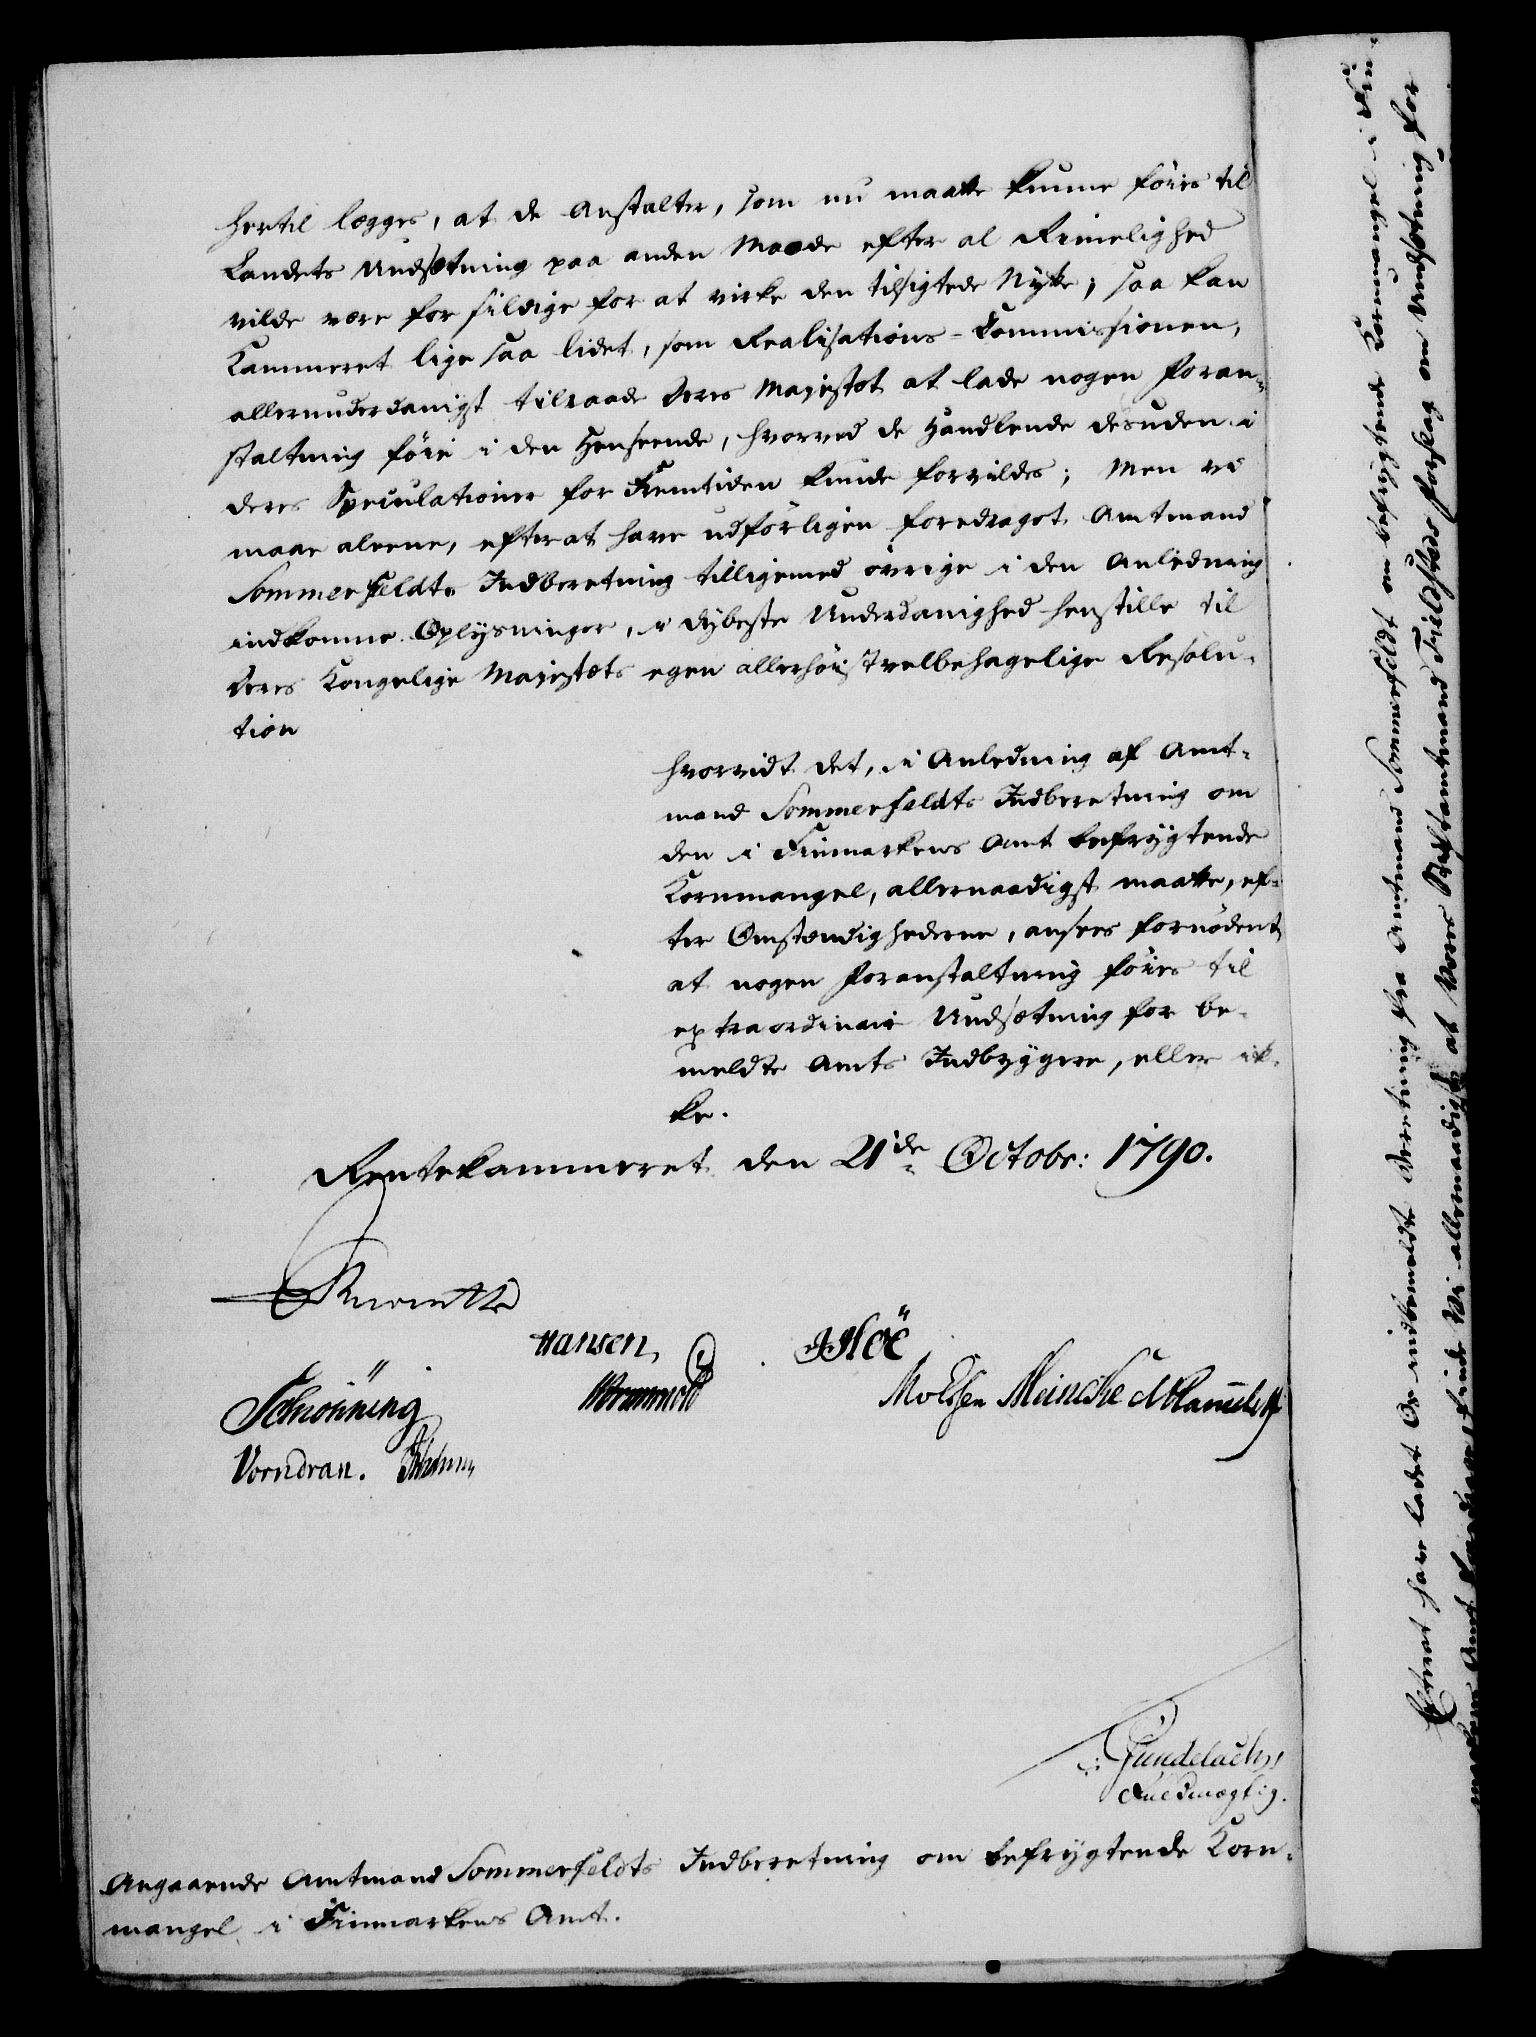 hertil lægges, at de Anstalter, som nu maatte kunne föies til
Landets Undsætning paa anden Maade efter al Rimelighed
vilde være for sildige for at virke den tilsigtede Nytte; saa kan
Kammeret lige saa lidet, som Realisations-Commissionen,
allerunderdanigst tilraade Deres Majestæt at lade nogen Foran-
staltning föie i den Henseende, hvorved de Handlende desuden i
deres Speculationer for Fremtiden kunde forvildes; Men vi
maae aleene, efterat have udförligen foredraget Amtmand
Sommerfeldts Indberetning tilligemed övrige i den Anledning
indkomne Oplysninger, i dybeste Underdanighed henstille til
Deres Kongelige Majestæts egen allerhöist velbehagelige Resolu-
tion
hvorvidt det, i Anledning af Amt-
mand Sommerfeldts Indberetning om
den i Finmarkens Amt befrygtende
Kornmangel, allernaadigst maatte, ef-
ter Omstændighederne, ansees fornödent,
at nogen Foranstaltning föies til
extraordinair Undsætning for be-
meldte Amts Indbyggere, eller ik-
ke.
Rentekammeret den 21de Octobr: 1790.
Hansen,
Schönning
Wormwold
Molssen Meincke
Vorndran.
Gundelach,
Fuldmægtig.
Angaaende Amtmand Sommerfeldts Indberetning om befrygtende Korn-
mangel i Finmarkens Amt.
Efterat have ladet Os indbemeldte Beretning fra Amtmand Sommerfeldt om befrygtende Kornmangel i Fin-
markens Amt foredrage, finde Vi allernaadigst, at Vores Stiftamtmand Fieldsteds Forslag om Undsætning for